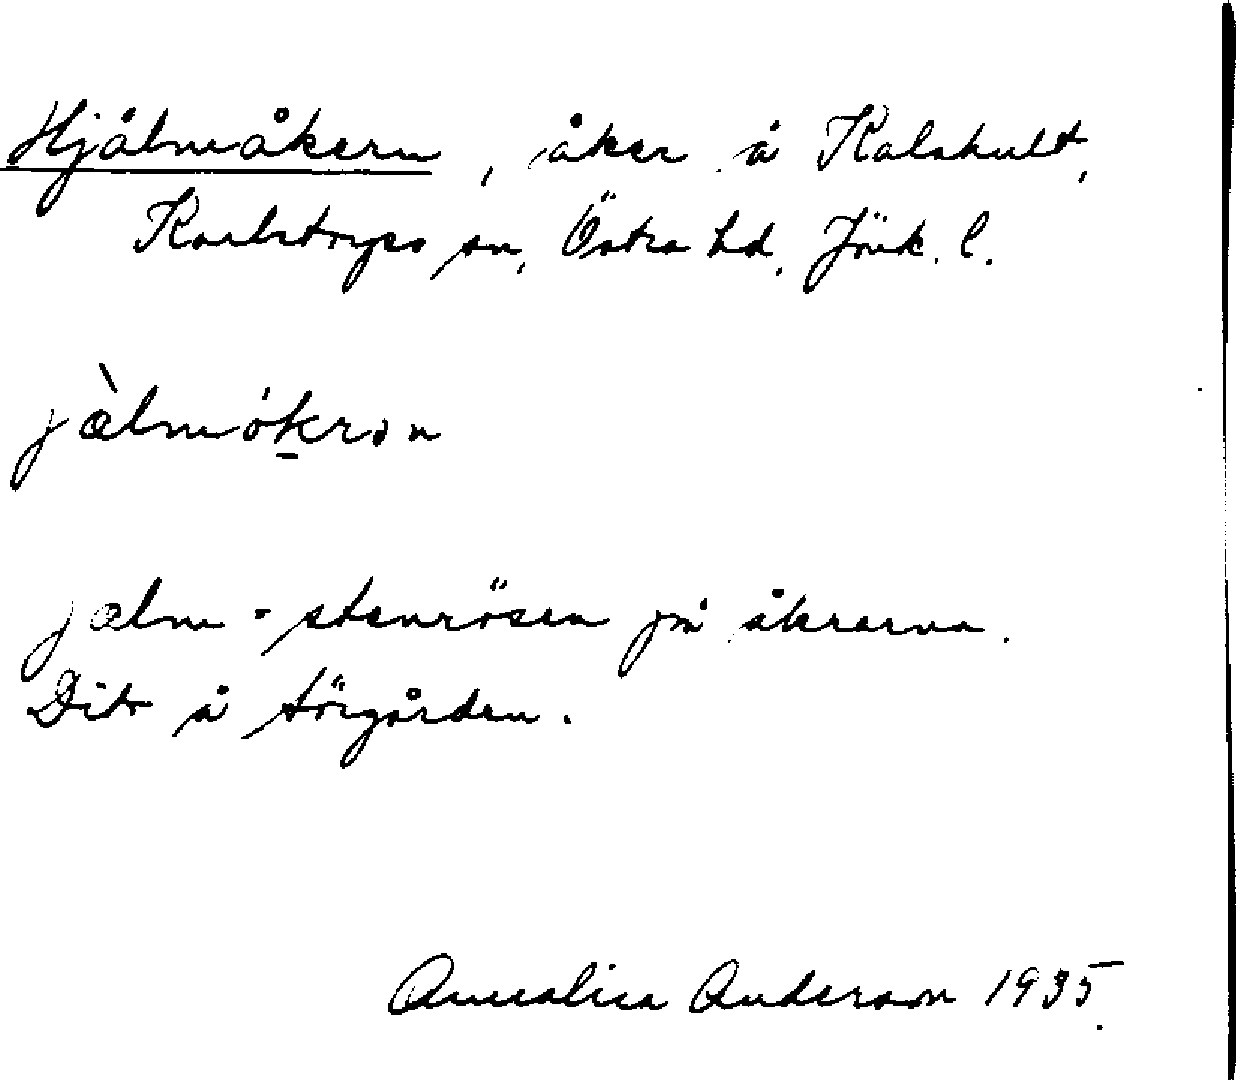 Hjälmåkern, åker å Kalshult,
Karlstorps sn, Östra hd, Jönk. l.
jàlmókrɔn
jalm = stenrösen på åkrarna.
Dito å Störgården.
Annalisa Anderson 1935.